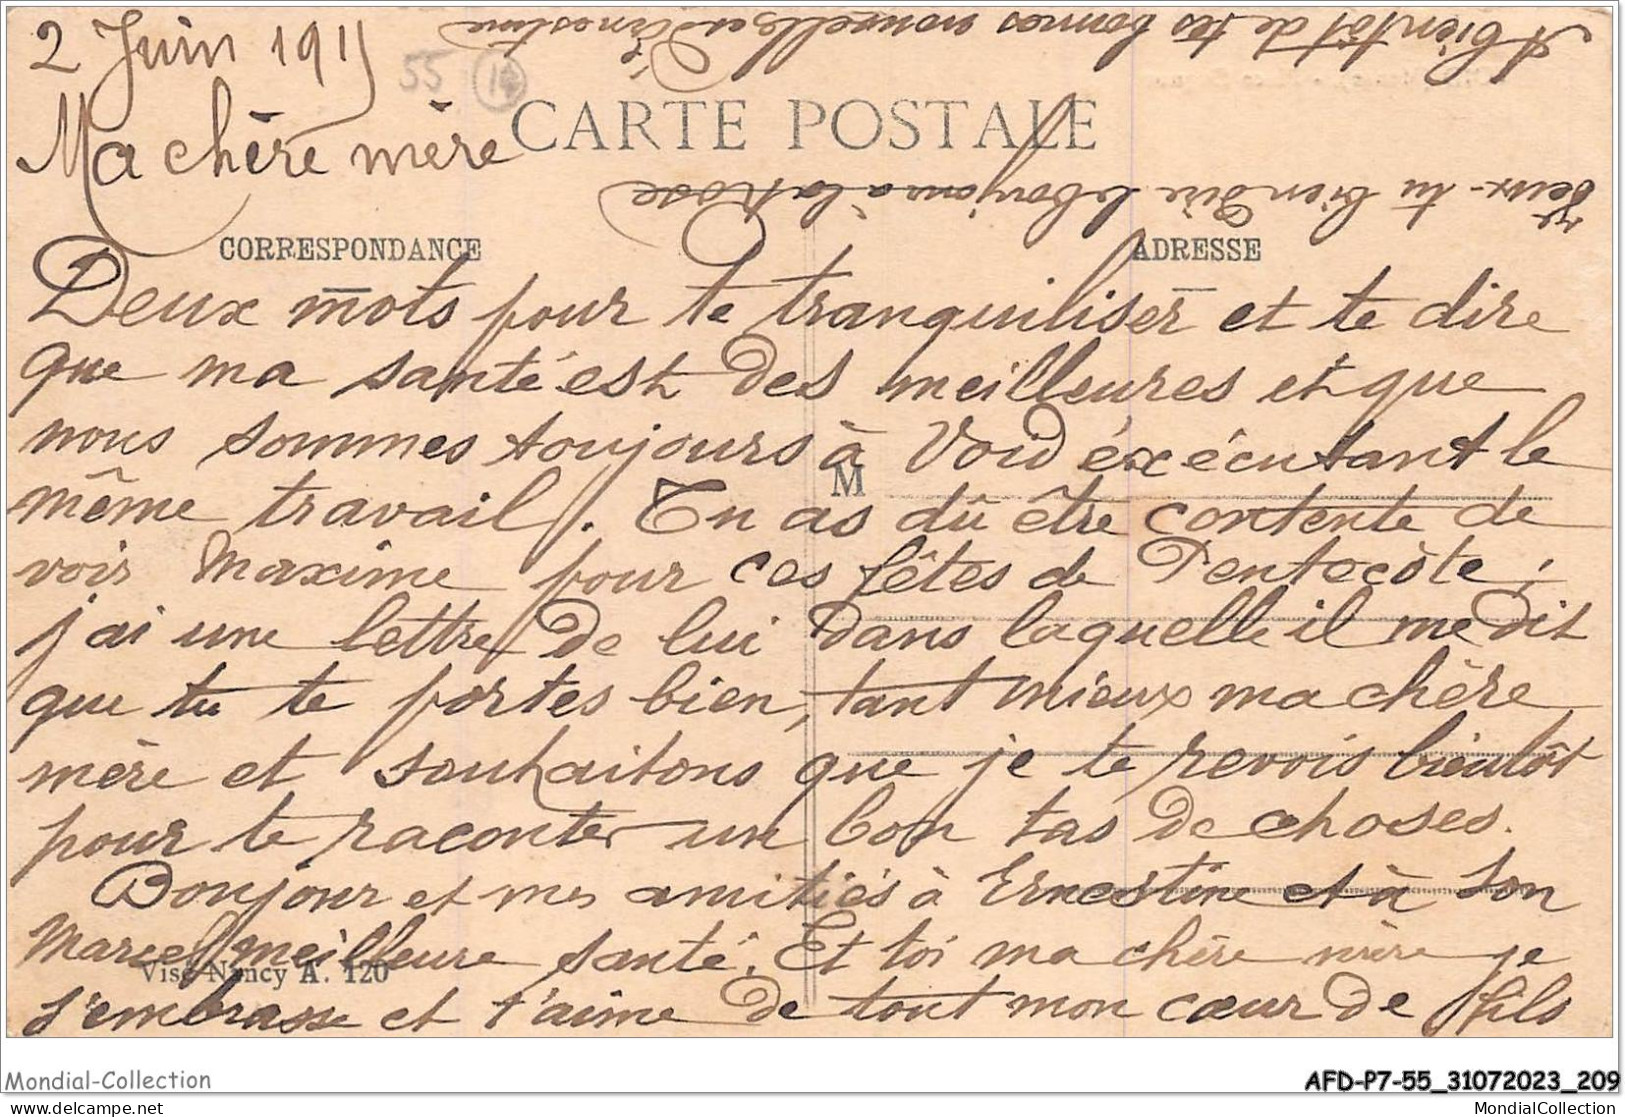 2 Juin 1915
55 14
Ma chère mère
CARTE POSTALE
CORRESPONDANCE
ADRESSE
Deux mots pour te tranquiliser et te dire
que ma santé est des meilleures et que
nous sommes toujours à Void éxécutant le
M
même travail. Tu as dû être contente de
voir Maxime pour ces fêtes de Pentecôte;
j'ai une lettre de lui dans laquelle il me dit
que tu te portes bien, tant mieux ma chère
mère et souhaitons que je te revois bientôt
pour te raconter un bon tas de choses.
Bonjour et mes amitiés à Ernestine et à son
Marcel meilleure santé. Et toi ma chère mère je
Visé Nancy A. 120
t'embrasse et t'aime de tout mon cœur de fils
Veux-tu bien dire le bonjour à la Rose
A bientôt de tes bonnes nouvelles et Ernestine
Mondial-Collection
AFD-P7-55_31072023_209
delcampe.net
MondialCollection